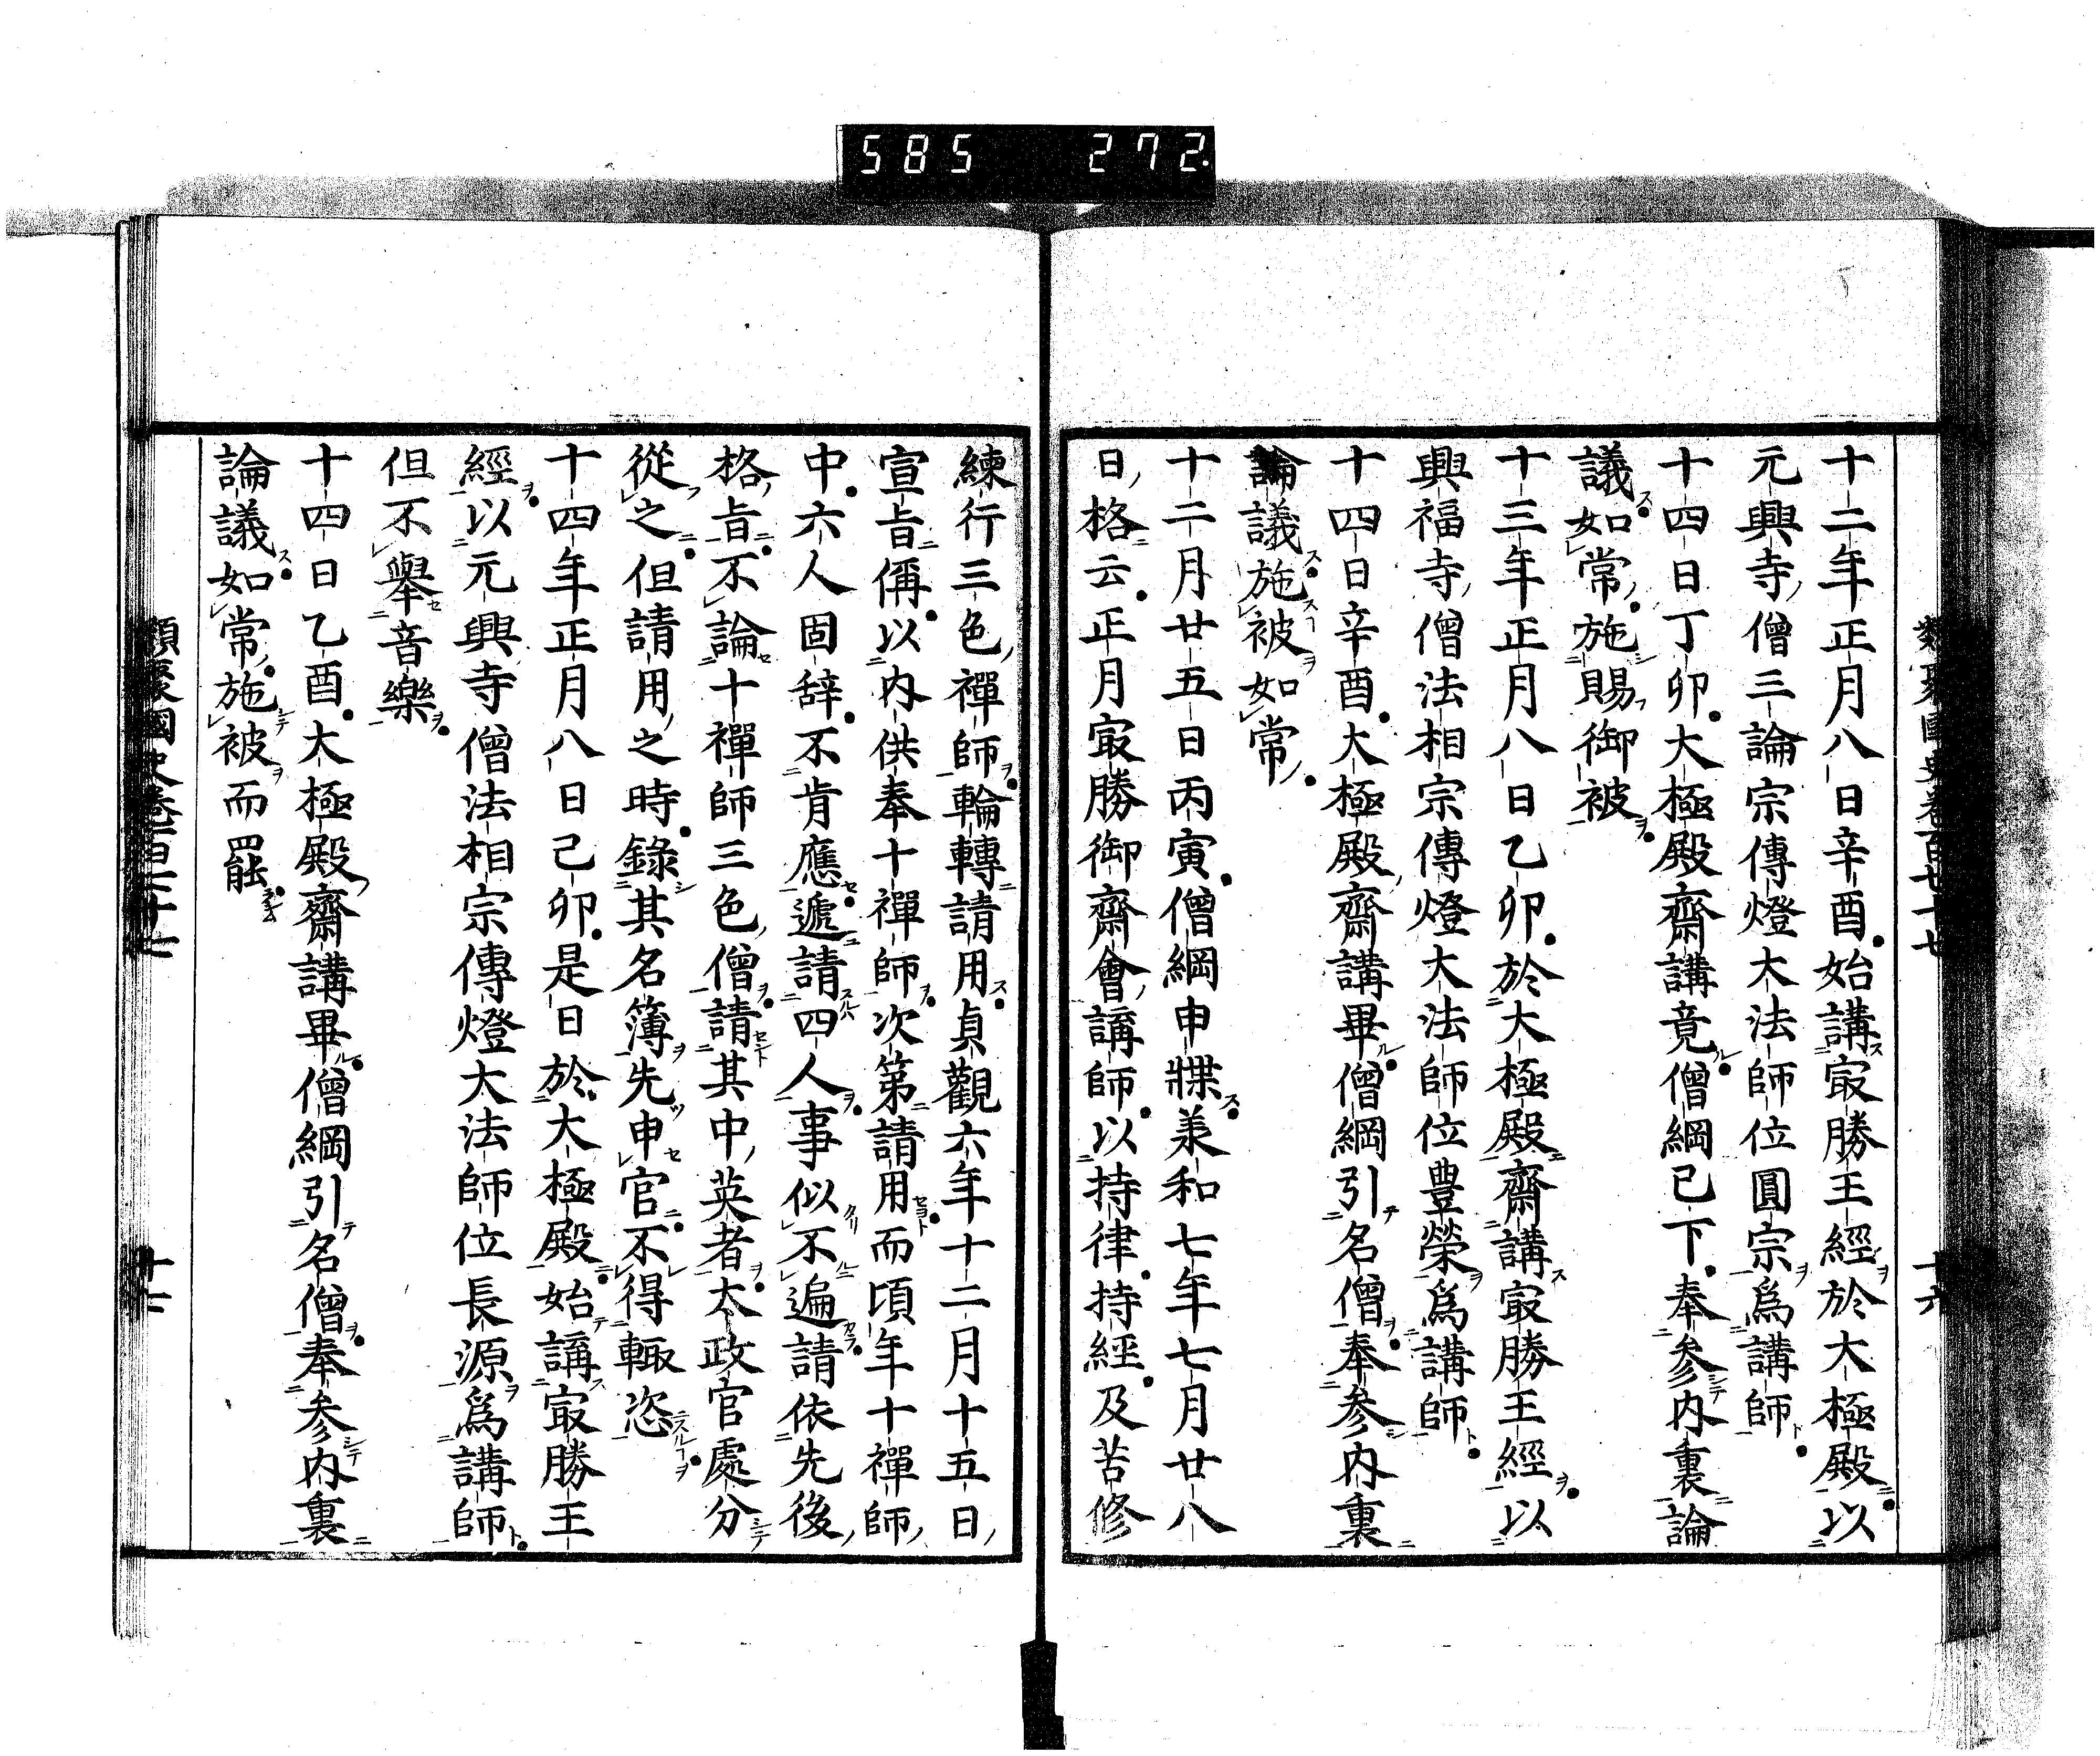 585 272.
類聚國史卷百七十七 十六
十二年正月八日辛酉始講㝡勝王經於大極殿以
元興寺僧三論宗傳燈大法師位圓宗爲講師
十四日丁卯大極殿齋講竟僧綱已下奉參内裏論
議如常施賜御被
十三年正月八日乙卯於大極殿齋講㝡勝王經以
興福寺僧法相宗傳燈大法師位豊榮爲講師
十四日辛酉大極殿齋講畢僧綱引名僧奉參内裏
論議施被如常
十二月廿五日丙寅僧綱申牒羕和七年七月廿八
日格云正月㝡勝御齋會講師以持律持經及苦修
練行三色禪師輪轉請用貞觀六年十二月十五日
宣旨偁以内供奉十禪師次第請用而頃年十禪師
中六人固辞不肯應遞請四人事似不遍請依先後
格旨不論十禪師三色僧請其中英者太政官處分
從之但請用之時錄其名簿先申官不得輙恣
十四年正月八日己卯是日於大極殿始講㝡勝王
經以元興寺僧法相宗傳燈大法師位長源爲講師
但不舉音樂
十四日乙酉大極殿齋講畢僧綱引名僧奉參内裏
論議如常施被而罷
類聚國史卷百七十七 十七